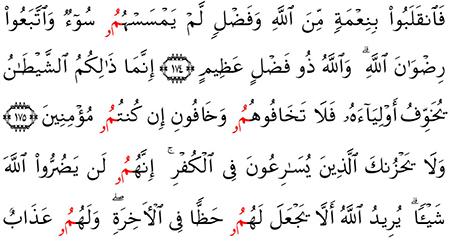 فَٱنقَلَبُوا۟ بِنِعْمَةٍ مِّنَ ٱللَّهِ وَفَضْلٍ لَّمْ يَمْسَسْهُمُۥ سُوٓءٌ وَٱتَّبَعُوا۟
رِضْوَٰنَ ٱللَّهِ ۗ وَٱللَّهُ ذُو فَضْلٍ عَظِيمٍ ﴿١٧٤﴾ إِنَّمَا ذَٰلِكُمُ ٱلشَّيْطَٰنُ
يُخَوِّفُ أَوْلِيَآءَهُۥ فَلَا تَخَافُوهُمُۥ وَخَافُونِ إِن كُنتُمُۥ مُؤْمِنِينَ ﴿١٧٥﴾
وَلَا يَحْزُنكَ ٱلَّذِينَ يُسَٰرِعُونَ فِى ٱلْكُفْرِ ۚ إِنَّهُمُۥ لَن يَضُرُّوا۟ ٱللَّهَ
شَيْـًٔا ۗ يُرِيدُ ٱللَّهُ أَلَّا يَجْعَلَ لَهُمُۥ حَظًّا فِى ٱلْءَاخِرَةِ ۖ وَلَهُمُۥ عَذَابٌ